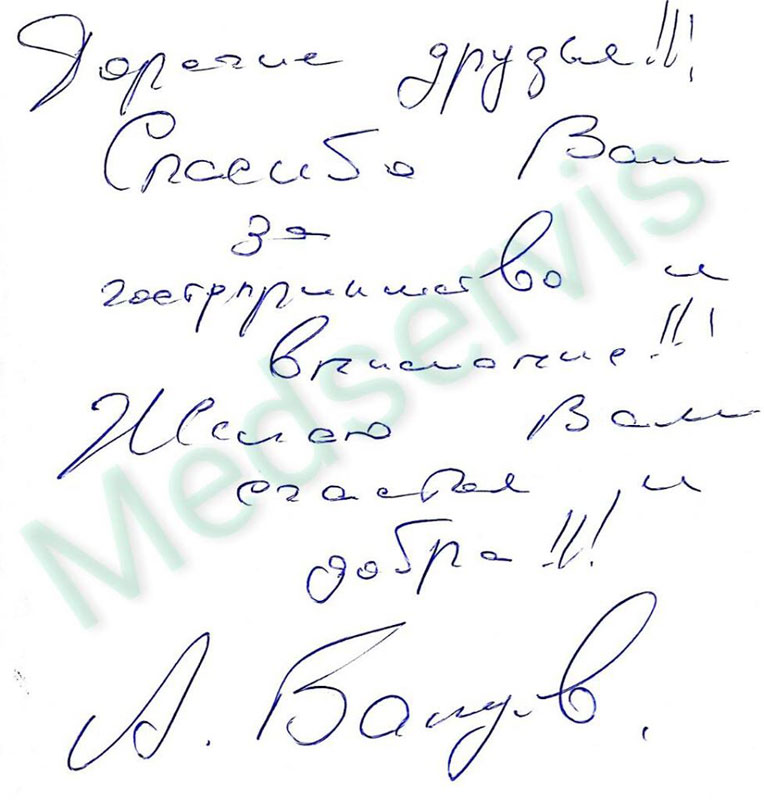 Дорогие друзья!!!
Спасибо Вам
за
гостеприимство и
внимание!!!
Желаю Вам
счастья и
добра!!!
А. Валуев.
Medservis